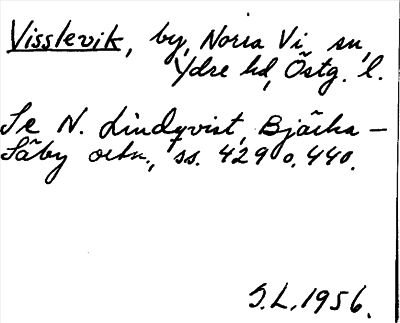 Visslevik, by, Norra Vi sn,
Ydre hd, Östg. l.
Se N. Lindqvist, Bjärka-
Säby ortn., ss. 429 o. 440.
S.L. 1956.